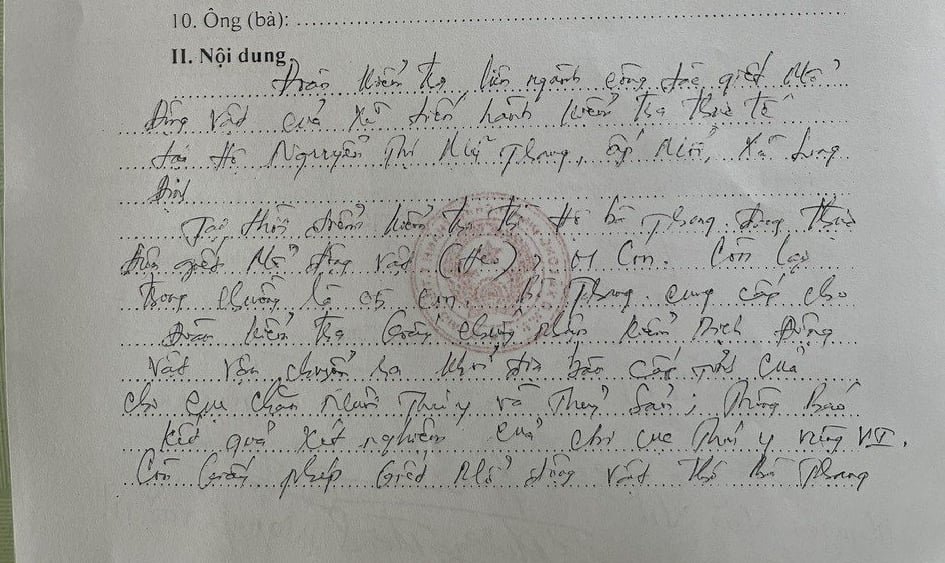 10. Ông (bà):
II. Nội dung
Đoàn kiểm tra liên ngành công tác giết mổ
động vật của xã tiến hành kiểm tra thực tế
tại hộ Nguyễn Thị Mỹ Phong, ấp Mới, xã Long
Định
Tại thời điểm kiểm tra thì hộ bà Phong đang thực
hiện giết mổ động vật (Heo), 01 con. Còn lại
trong chuồng là 05 con. Bà Phong cung cấp cho
Đoàn kiểm tra Giấy chứng nhận kiểm dịch động
vật vận chuyển ra khỏi địa bàn cấp tỉnh của
chi cục chăn nuôi Thú y và Thuỷ sản; Thông báo
kết quả xét nghiệm của chi cục Thú y vùng VI.
Còn Giấy phép Giết mổ động vật thì bà Phong